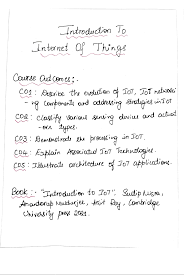 Introduction To
Internet Of Things
Course Outcomes:
CO1: Describe the evolution of IoT, IoT networki
-ng components and addressing strategies in IoT
CO2: Classify various sensing devices and actuat
-ors types.
CO3: Demonstrate the processing in IoT.
CO4: Explain Associated IoT Technologies.
CO5: Illustrate architecture of IoT applications.
Book:- "Introduction to IoT", Sudip Misra,
Anandarup Mukherjee, Arijit Roy, Cambridge
University press 2021.